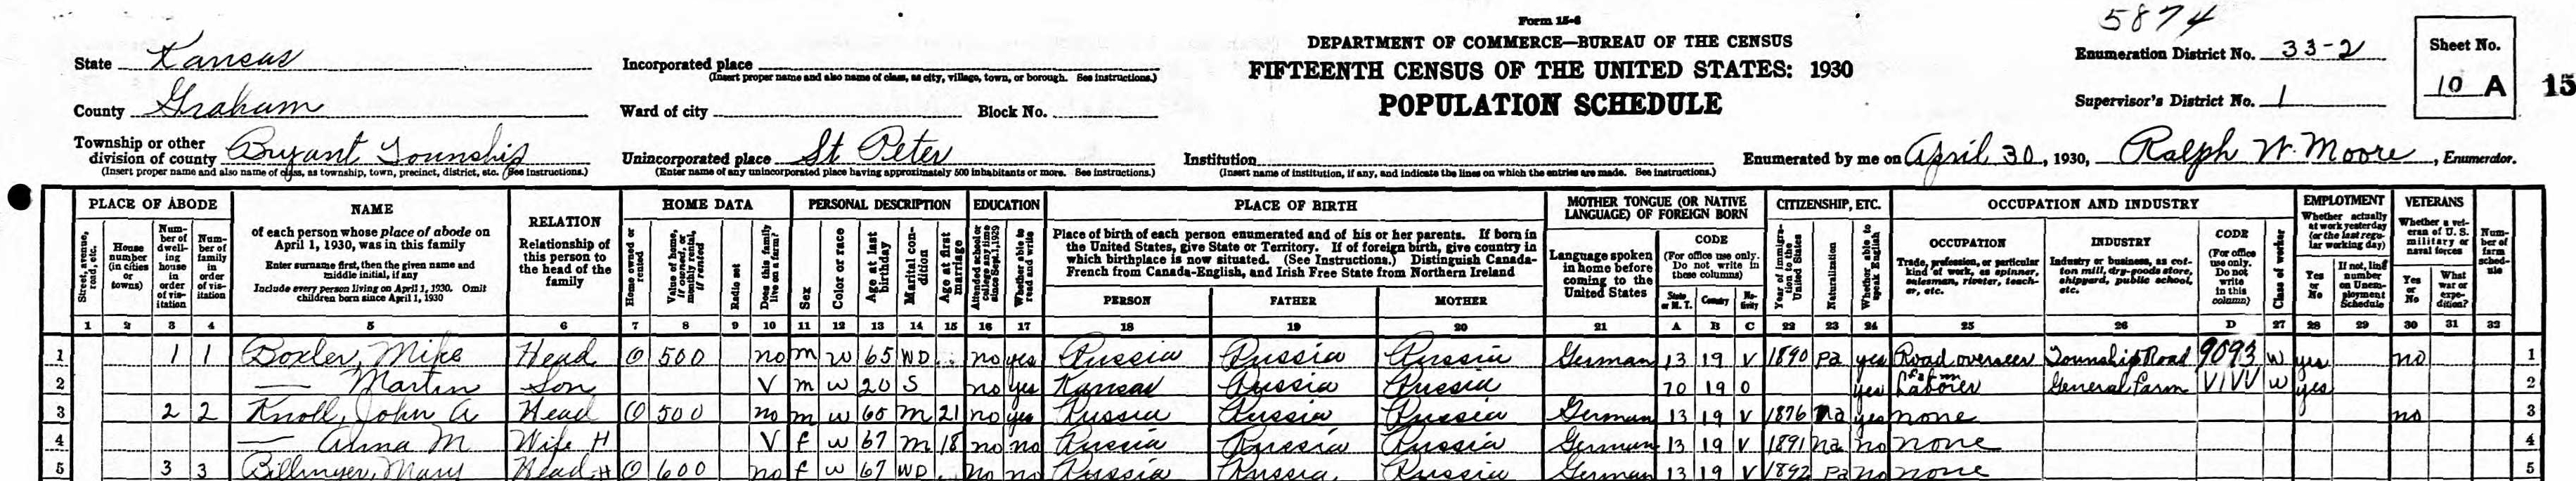 Form 15-6
5874
DEPARTMENT OF COMMERCE—BUREAU OF THE CENSUS
FIFTEENTH CENSUS OF THE UNITED STATES: 1930
POPULATION SCHEDULE
State Kansas
Incorporated place
(Insert proper name and also name of class, as city, village, town, or borough. See instructions.)
Enumeration District No. 33-2
Sheet No.
10 A
15
County Graham
Ward of city Block No.
Supervisor's District No. 1
Township or other
division of county Bryant Township
(Insert proper name and also name of class, as township, town, precinct, district, etc. See instructions.)
Unincorporated place St Peter
(Enter name of any unincorporated place having approximately 500 inhabitants or more. See instructions.)
Institution
(Insert name of institution, if any, and indicate the lines on which the entries are made. See instructions.)
Enumerated by me on April 30, 1930, Ralph W. Moore, Enumerator.
PLACE OF ABODE
Street, avenue, road, etc.
House number (in cities or towns)
Number of dwelling house in order of visitation
Number of family in order of visitation
NAME
of each person whose place of abode on
April 1, 1930, was in this family
Enter surname first, then the given name and
middle initial, if any
Include every person living on April 1, 1930. Omit
children born since April 1, 1930
RELATION
Relationship of
this person to
the head of the
family
HOME DATA
Home owned or rented
Value of home, if owned, or monthly rental, if rented
Radio set
Does this family live on a farm?
PERSONAL DESCRIPTION
Sex
Color or race
Age at last birthday
Marital condition
Age at first marriage
EDUCATION
Attended school or college any time since Sept. 1, 1929
Whether able to read and write
PLACE OF BIRTH
Place of birth of each person enumerated and of his or her parents. If born in
the United States, give State or Territory. If of foreign birth, give country in
which birthplace is now situated. (See Instructions.) Distinguish Canada-
French from Canada-English, and Irish Free State from Northern Ireland
PERSON FATHER MOTHER
MOTHER TONGUE (OR NATIVE
LANGUAGE) OF FOREIGN BORN
Language spoken
in home before
coming to the
United States
CODE
(For office use only.
Do not write in
these columns)
State or M. T. Country Nativity
CITIZENSHIP, ETC.
Year of immigration to the United States
Naturalization
Whether able to speak English
OCCUPATION AND INDUSTRY
OCCUPATION
Trade, profession, or particular
kind of work, as spinner,
salesman, riveter, teach-
er, etc.
INDUSTRY
Industry or business, as cot-
ton mill, dry-goods store,
shipyard, public school,
etc.
CODE
(For office
use only.
Do not
write
in this
column)
Class of worker
EMPLOYMENT
Whether actually
at work yesterday
(or the last regu-
lar working day)
Yes or No
If not, line number on Unemployment Schedule
VETERANS
Whether a vet-
eran of U. S.
military or
naval forces
Yes or No
What war or expedition?
Number of farm schedule
1 2 3 4 5 6 7 8 9 10 11 12 13 14 15 16 17 18 19 20 21 A B C 22 23 24 25 26 D 27 28 29 30 31 32
1 1 1 Boxler, Mike Head O 500 no m w 65 WD no yes Russia Russia Russia German 13 19 V 1890 Pa yes Road overseer Township Road 9093 W yes no 1
2 — Martin Son V m w 20 S no yes Kansas Russia Russia 70 19 0 yes Farm Laborer General Farm VIVV W yes 2
3 2 2 Knoll, John A Head O 500 no m w 65 m 21 no yes Russia Russia Russia German 13 19 V 1876 Na yes none no 3
4 — Anna M Wife H V f w 67 m 18 no no Russia Russia Russia German 13 19 V 1891 Na no none 4
5 3 3 Billmyer, Mary Head H O 600 no f w 67 WD no no Russia Russia Russia German 13 19 V 1892 Pa no none 5